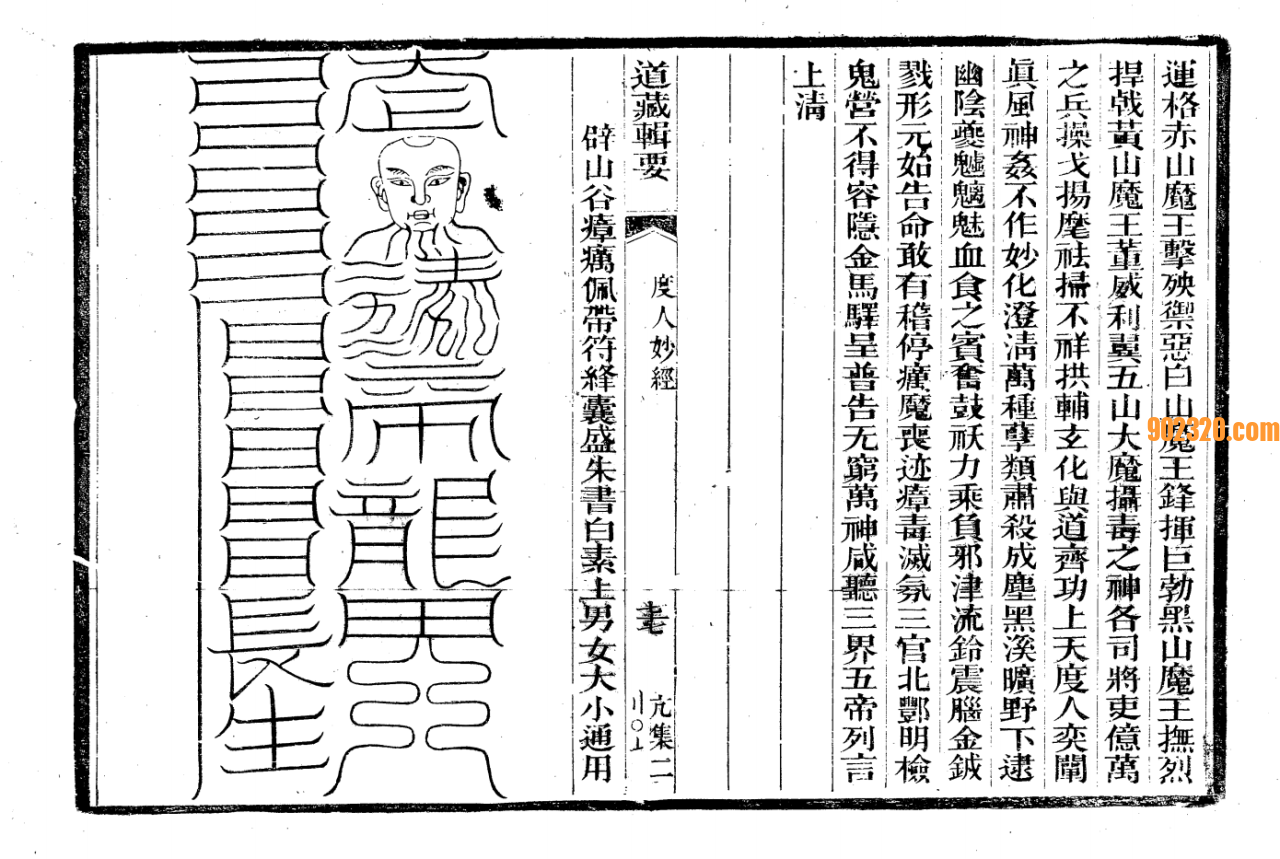 運格赤山魔王擊殃禦惡白山魔王鋒揮巨勃黑山魔王撫烈
捍戟黃山魔王董威利翼五山大魔攝毒之神各司將吏億萬
之兵操戈揚麾祛掃不祥拱輔玄化與道齊功上天度人奕闡
眞風神姦不作妙化澄淸萬種孽類肅殺成塵黑溪曠野下逮
幽陰夔魖魑魅血食之賓奮鼓祅力乘負邪津流鈴震腦金鉞
戮形元始告命敢有稽停癘魔喪迹瘴毒滅氛三官北酆明檢
鬼營不得容隱金馬驛呈普告无窮萬神咸聽三界五帝列言
上淸
道藏輯要
度人妙經
亢集二
辟山谷瘴癘佩帶符絳囊盛朱書白素上男女大小通用
902320.com